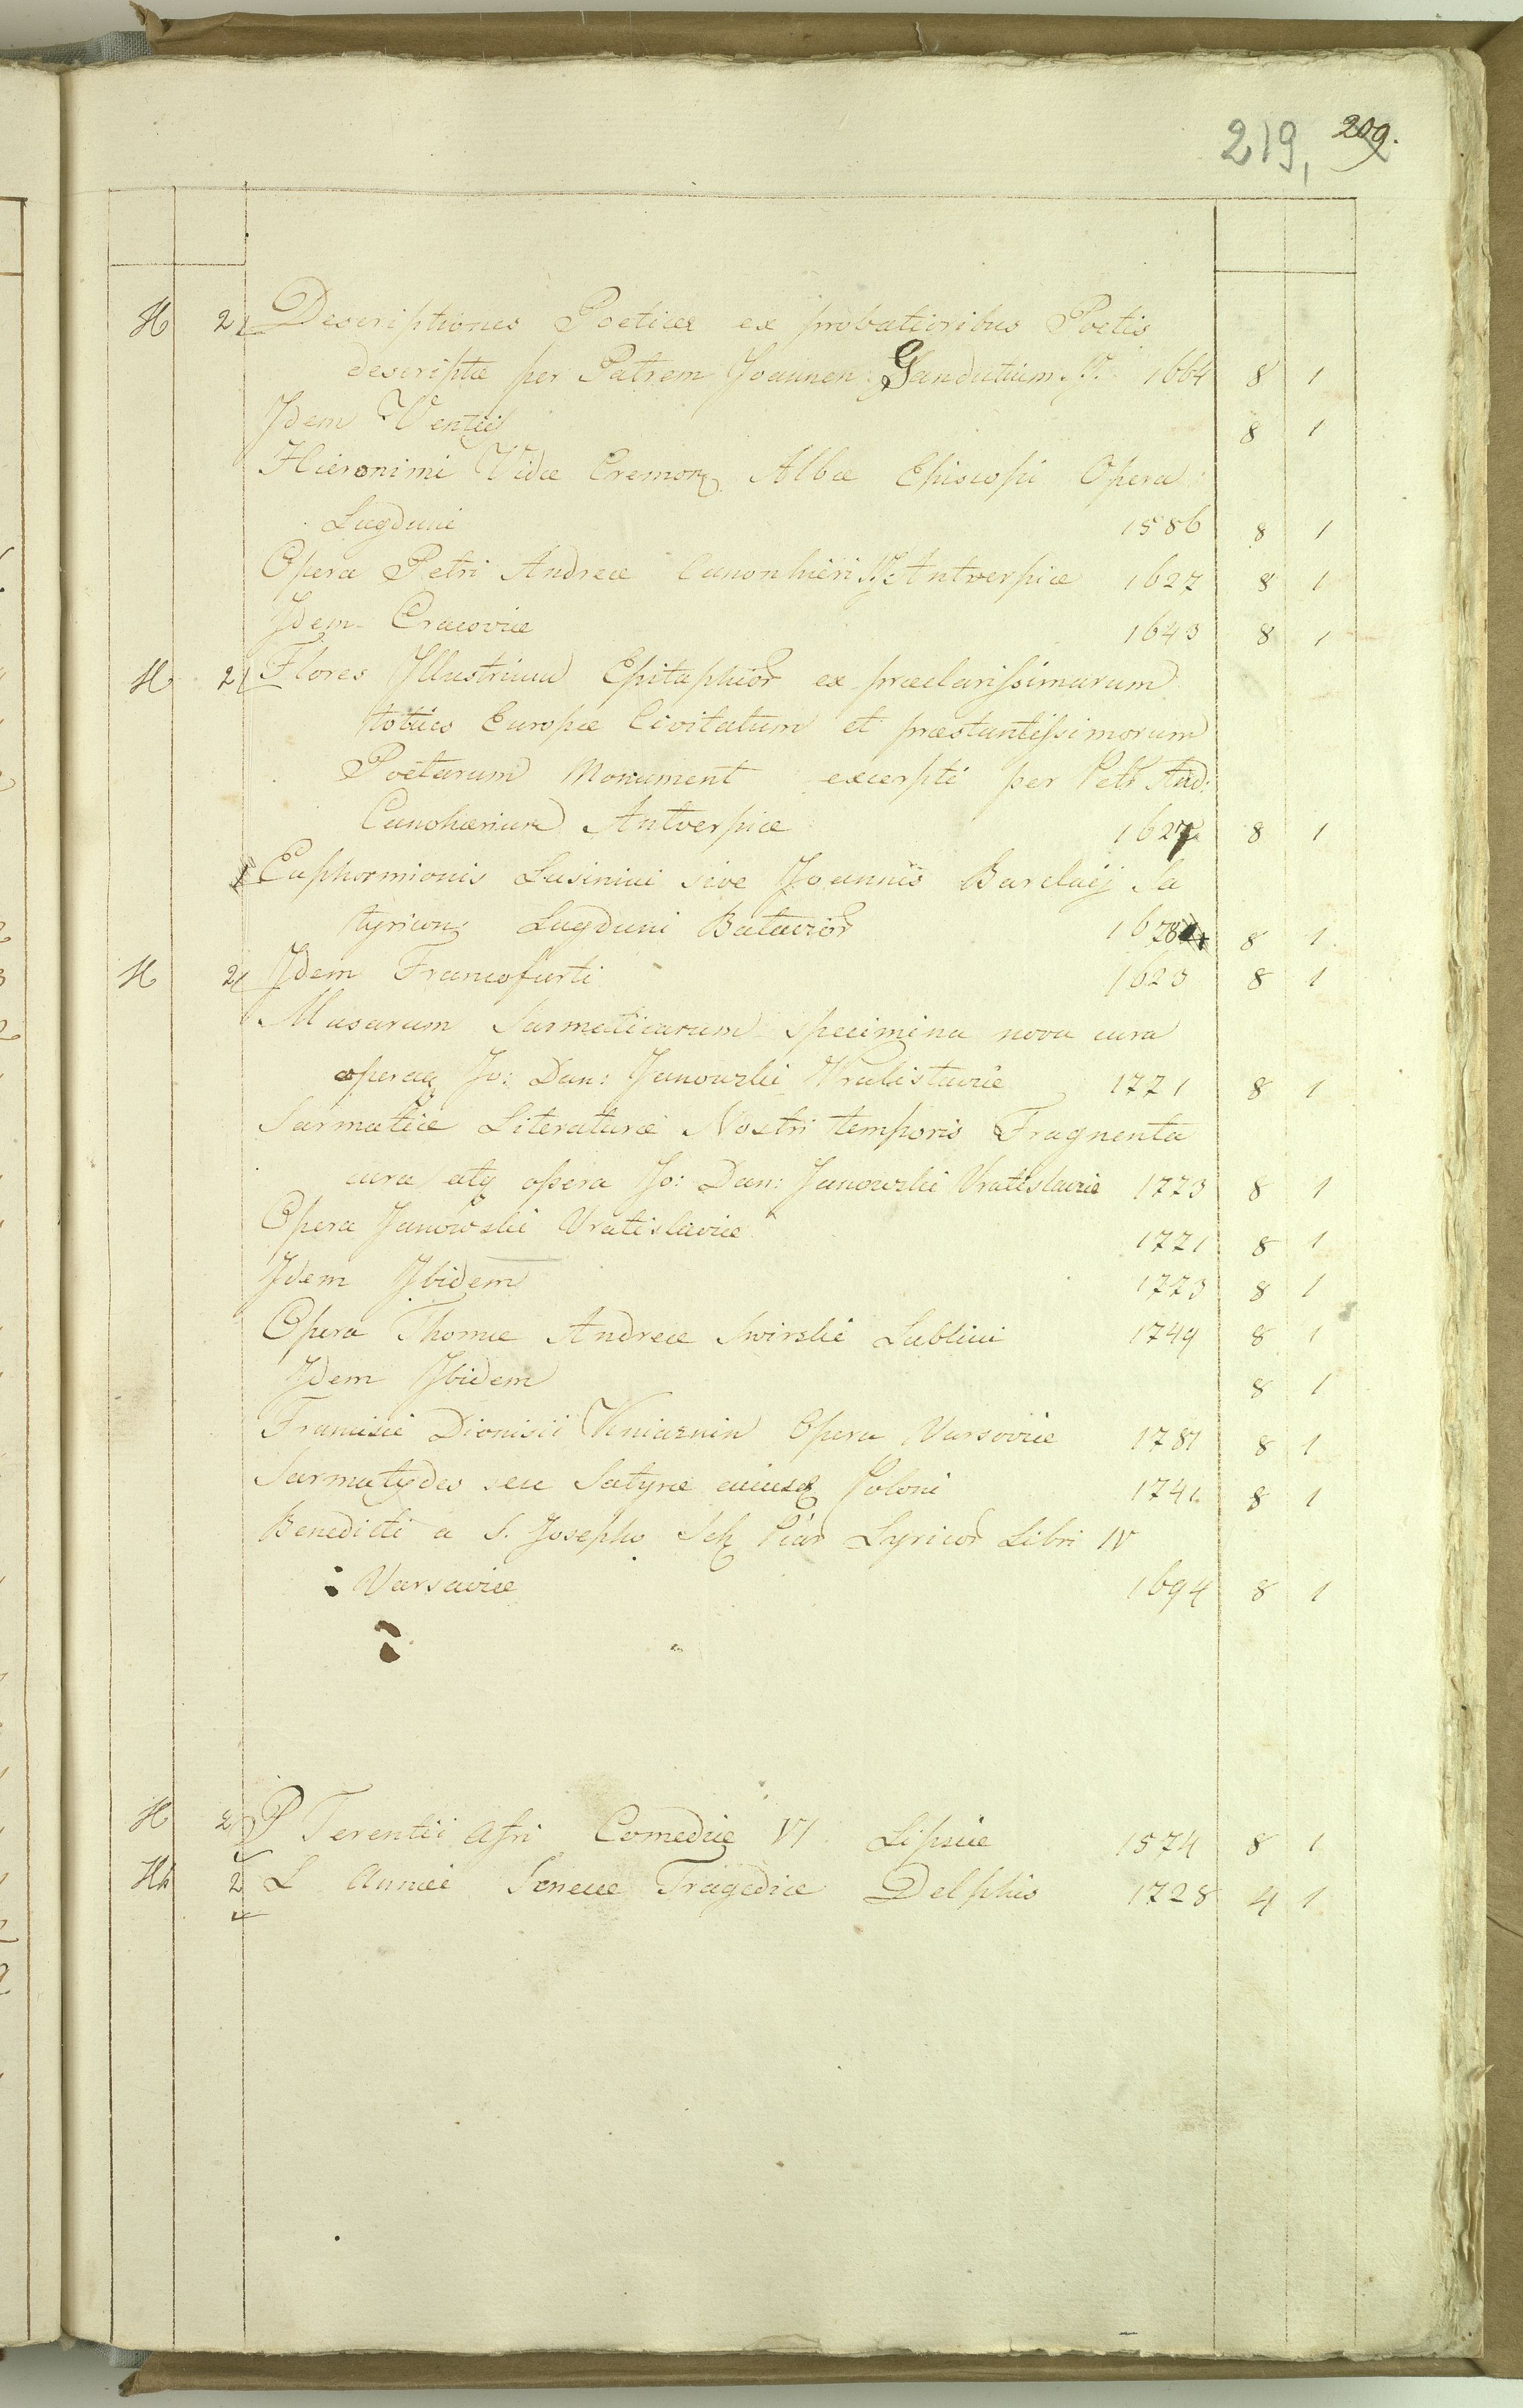 219, 209.
H 2 Descriptiones Poeticæ ex probatioribus Poetis
descriptæ per Patrem Joannen Gandutium 1664 8 1
Jdem Ventiis 8 1
Hieronimi Vidæ Cremon Albæ Episcopi Opera
Lugduni 1586 8 1
Opera Petri Andreæ Canonhieri Antverpiæ 1627 8 1
Jdem Cracoviæ 1643 8 1
H 2 Flores Jllustrium Epitaphior ex præclarissimarum
totius Europæ Civitatum et præstantissimorum
Poëtarum Monument excerpti per Petr And:
Canohærium Antverpiæ 1627 8 1
Euphormionis Lusinini sive Joannis Barclaij Sa
tyricon Lugduni Batavior 8 1
H 2 Jdem Francofurti 1623 8 1
Musarum Sarmaticarum specimina nova cura
operaq Jo: Dan: Janowzki Wratislaviæ 1771 8 1
Sarmatiæ Literaturæ Nostri temporis Fragnenta
cura atq opera Jo: Dan: Janowzki Vratislaviæ 1773 8 1
Opera Janowzki Vratislaviæ 1771 8 1
Jdem Jbidem 1773 8 1
Opera Thomæ Andreæ Swirzki Lublini 1749 8 1
Jdem Jbidem 8 1
Francisci Dionisii Kniaznin Opera Varsoviæ 1781 8 1
Sarmatydes seu Satyræ cuiusq Poloni 1741 8 1
Benedicti a S. Josepho Sch Piar Lyricor Libri IV
Varsaviæ 1694 8 1
H 2 P Terentii Afri Comediæ VI Lipsiæ 1574 8 1
Hh 2 L Annæi Senecæ Tragediæ Delphis 1728 4 1